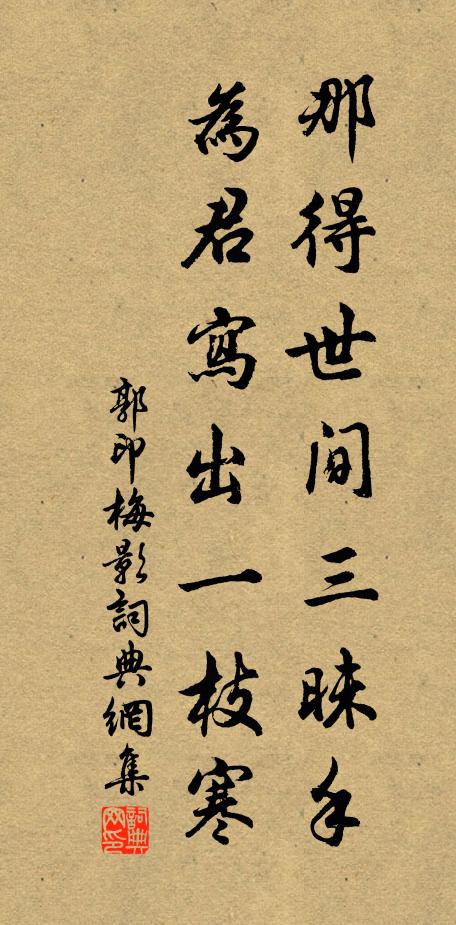 那得世间三昧手
為君寫出一枝寒
郭印梅影詞典網集
詞典网印